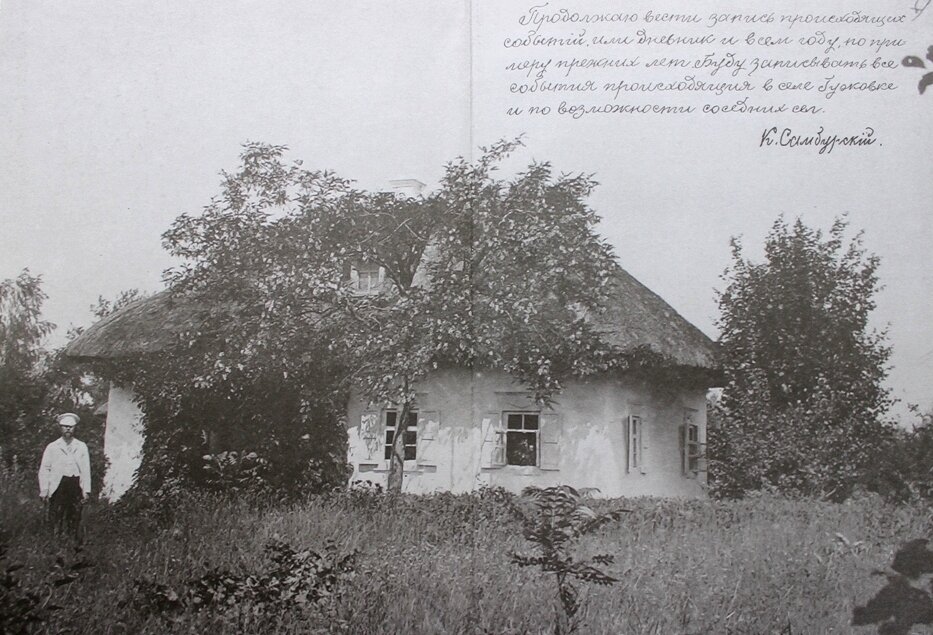 Продолжаю вести запись происходящих
событій, или дневник и всем году, по при
меру прежних лет Буду записывать все
события происходящия в селе Гурковке
и по возможности соседних сел.
К. Самбурскій.